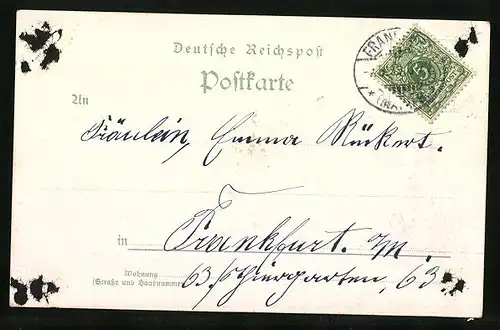 Deutsche Reichspost
Postkarte
FRANK
An
Fräulein, Emma Rückert.
in Frankfurt. M.
Wohnung
(Straße und Hausnummer)
63, Thiergarten, 63.